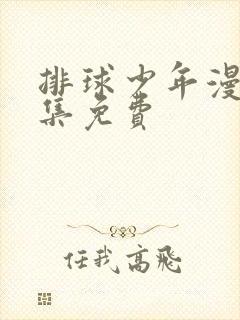 排球少年漫
集免費
任我高飛